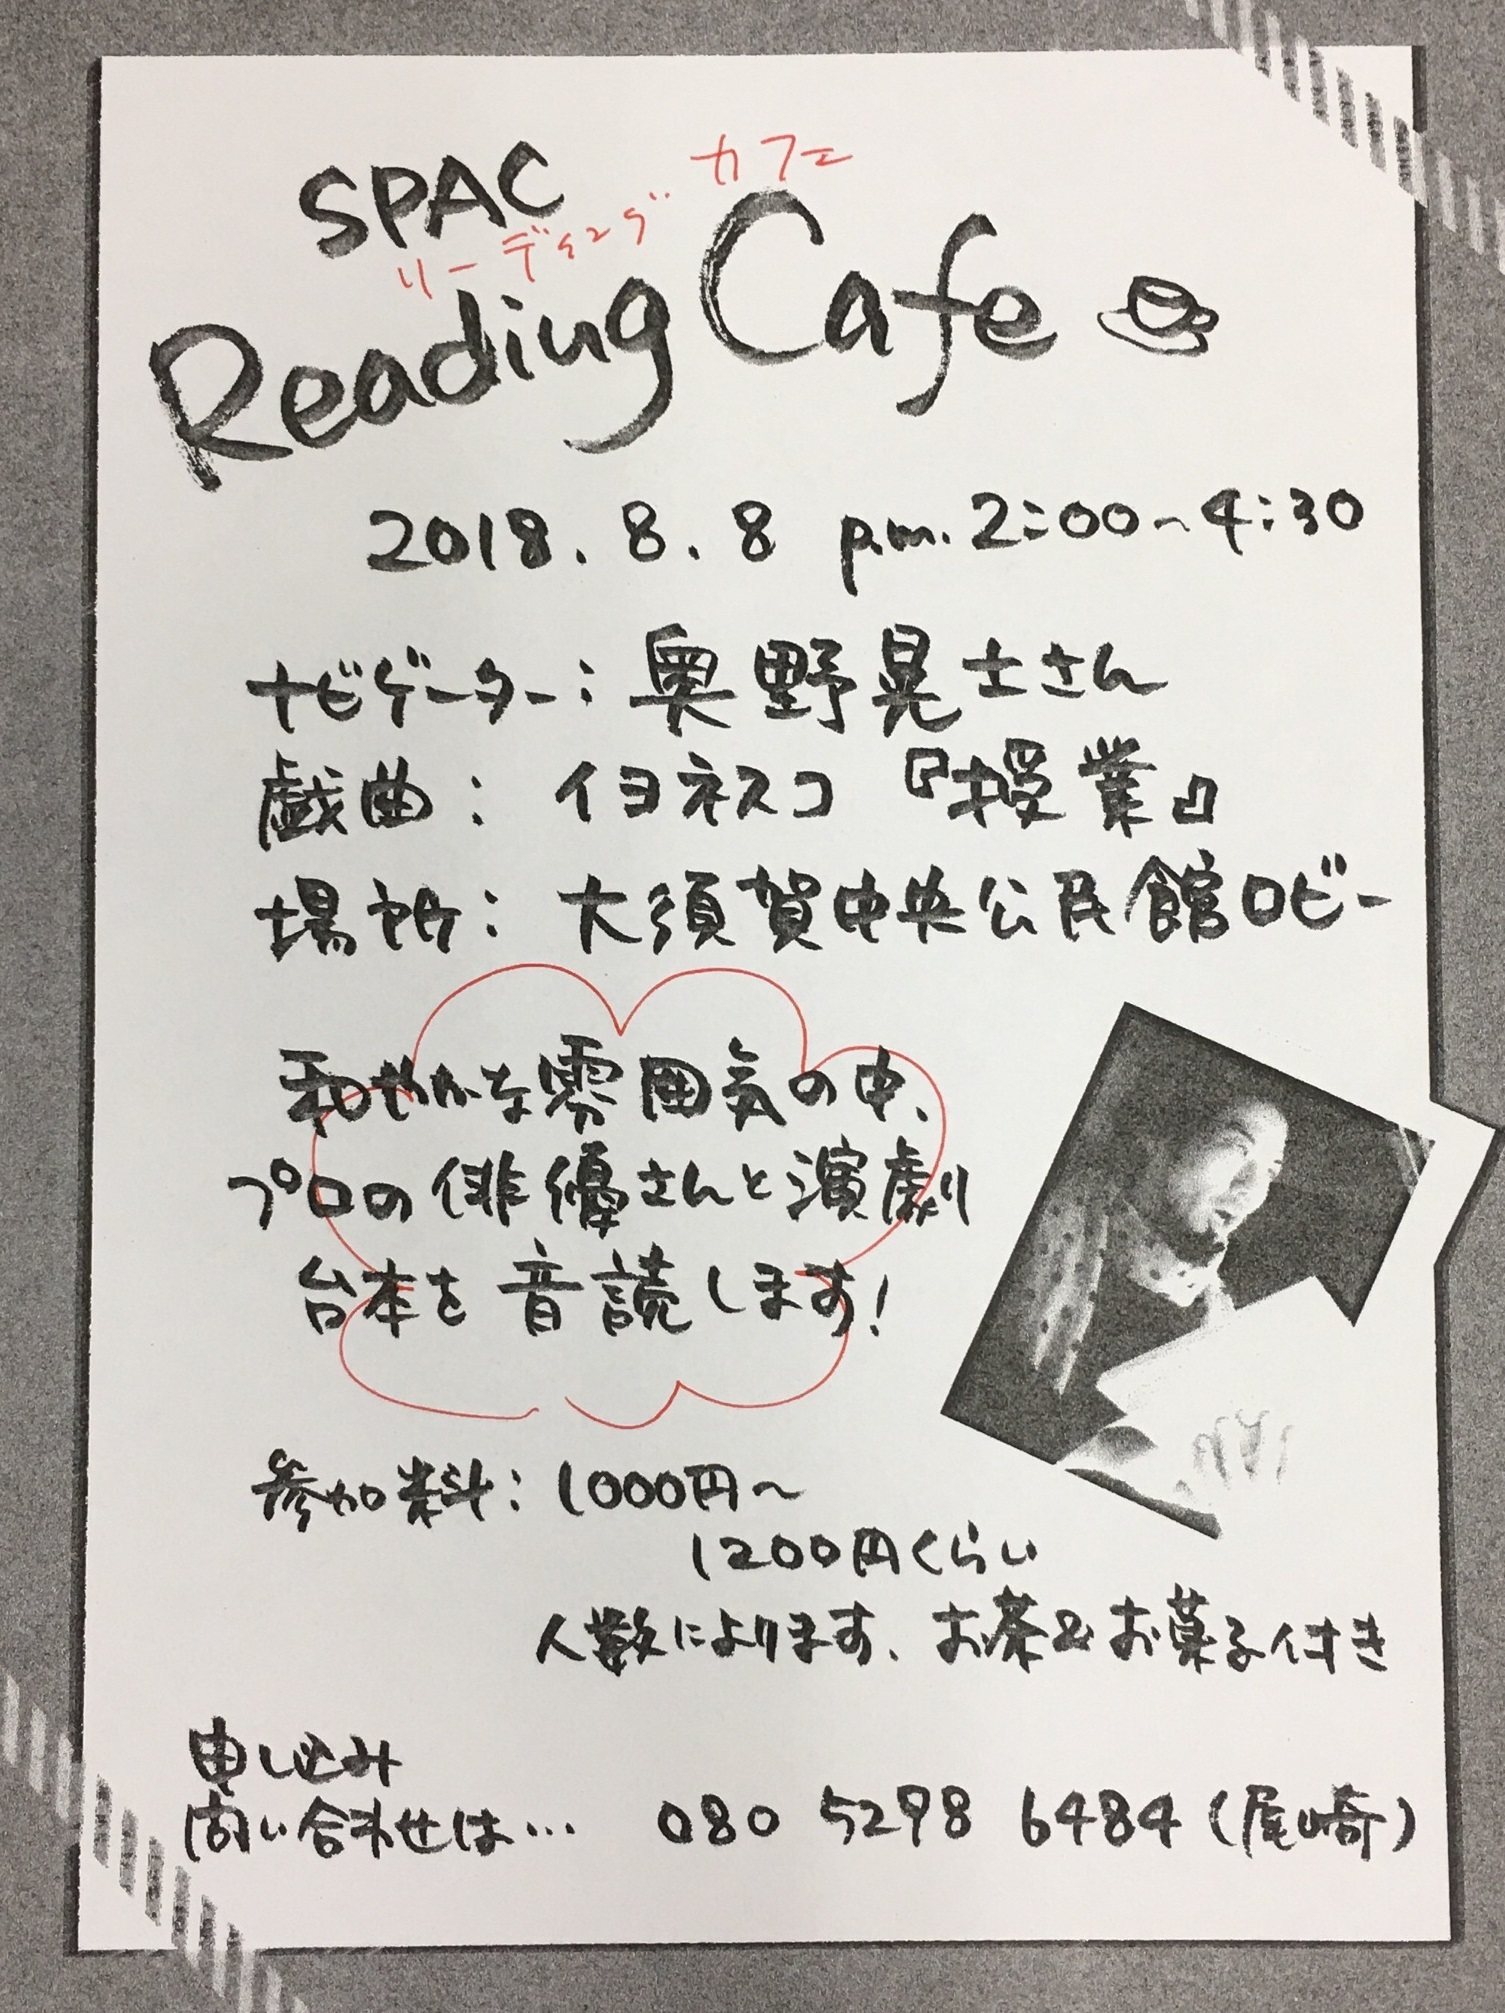 SPAC
リーディング カフェ
Reading Cafe
2018.8.8 p.m.2:00~4:30
ナビゲーター:奥野晃士さん
戯曲:イヨネスコ『授業』
場所:大須賀中央公民館ロビー
和やかな雰囲気の中、
プロの俳優さんと演劇
台本を音読します!
参加料:1000円~
1200円くらい
人数によります、お茶&お菓子付き
申し込み
問い合わせは… 080 5298 6484(尾崎)